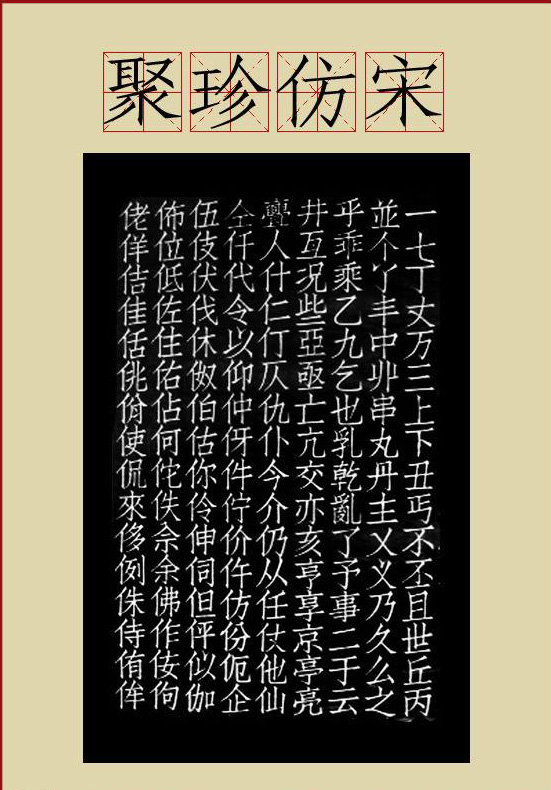 聚珍仿宋
一七丁丈万三上下丑丐不丕且世丘丙
並个丫丰中丱串丸丹主乂义乃久么之
乎乖乘乙九乞也乳乾亂了予事二于云
井亙况些亞亟亡亢交亦亥亨享京亭亮
亹人什仁仃仄仇仆今介仍从任仗他仙
仝仟代令以仰仲伢件佇价仵仿份伋企
伍伎伏伐休伮伯估你伶伸伺但伻似伽
佈位低佐住佑佔何佗佚余佘佛作佞佝
佬佯佶佳佸佻佾使侃來侈例侏侍侑侔